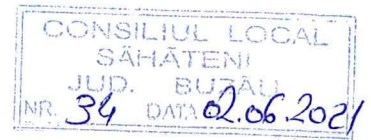 CONSILIUL LOCAL
SĂHĂTENI
JUD. BUZĂU
NR. 34 DATA 02.06.2021